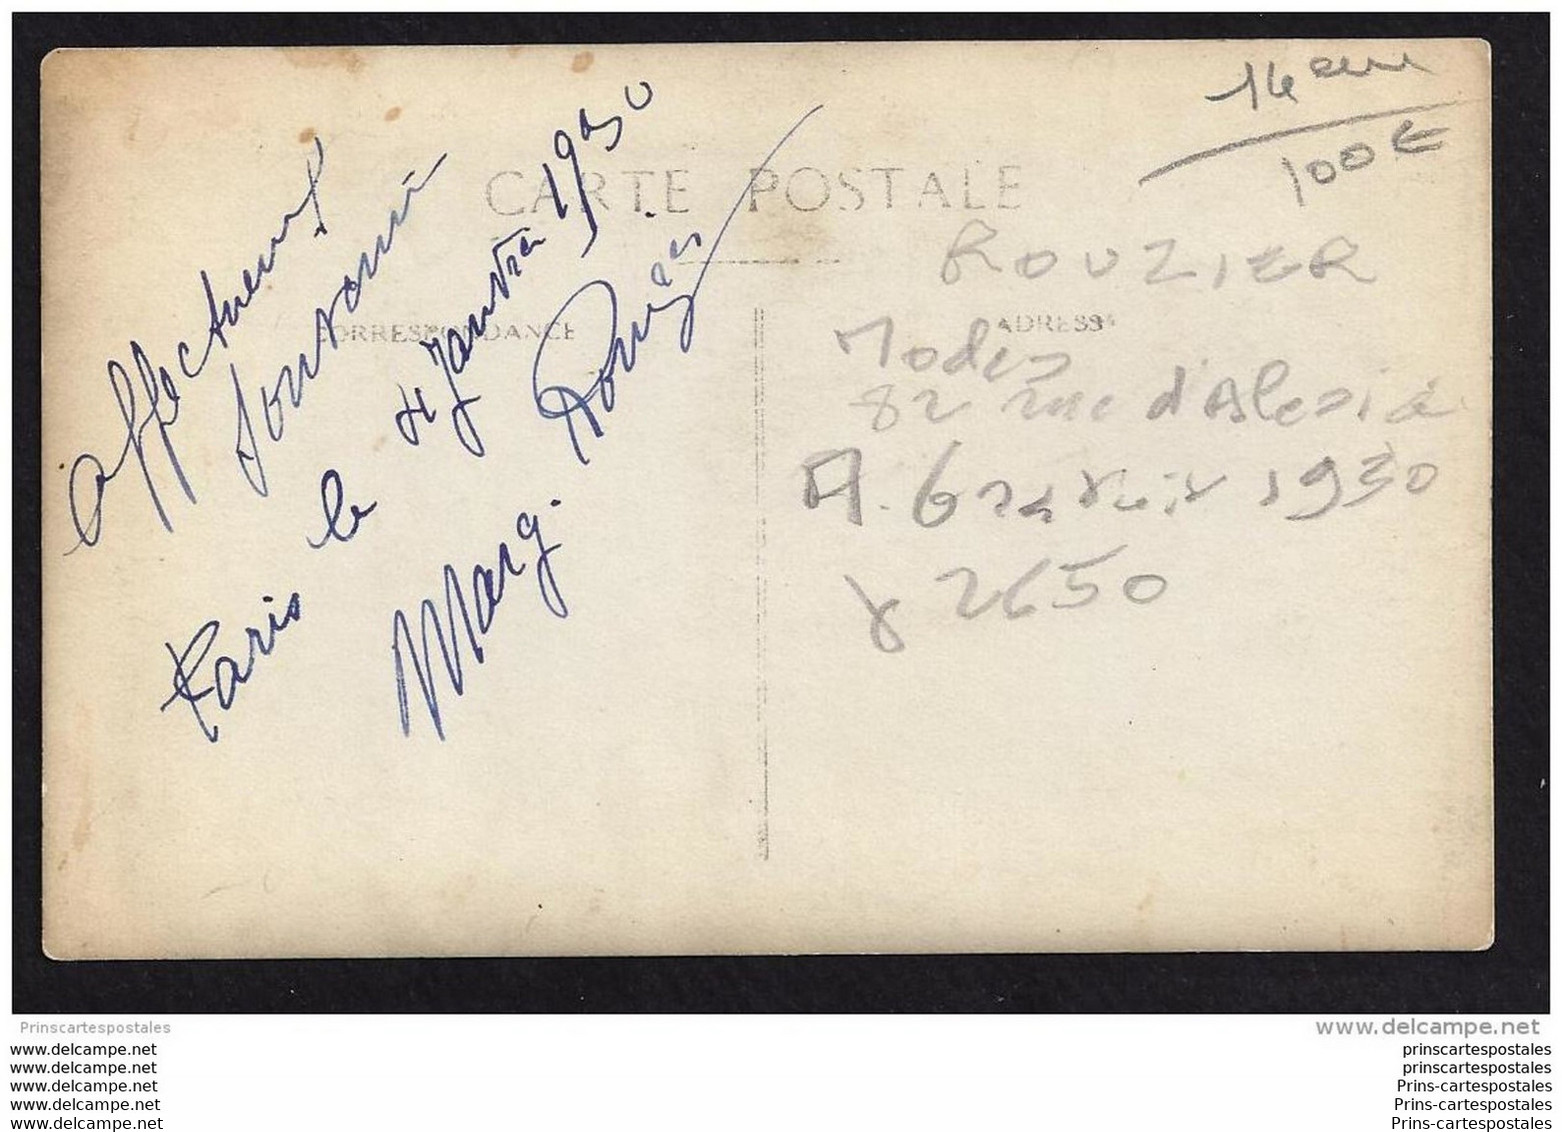 CARTE POSTALE
CORRESPONDANCE
ADRESSE
affectueux
souvenir
Paris le 4 Janvier 1930
Marg.
14eme
100€
ROUZIER
Modes
82 rue d'Alesia
A. 1930
2650
Prinscartespostales
www.delcampe.net
www.delcampe.net
www.delcampe.net
www.delcampe.net
www.delcampe.net
www.delcampe.net
prinscartespostales
prinscartespostales
Prins-cartespostales
Prins-cartespostales
Prins-cartespostales